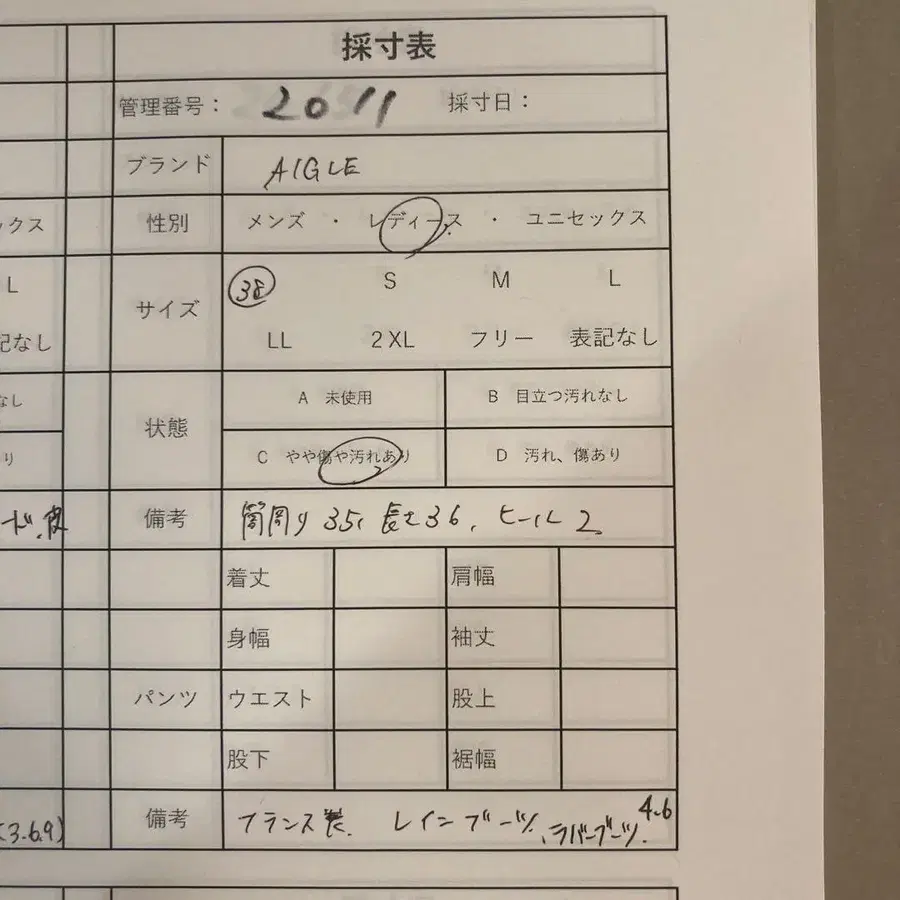 採寸表
管理番号： 2011 採寸日：
ブランド AIGLE
ックス 性別 メンズ ・ レディース ・ ユニセックス
L サイズ 38 S M L
記なし LL 2XL フリー 表記なし
なし 状態 A 未使用 B 目立つ汚れなし
り C やや傷や汚れあり D 汚れ、傷あり
備考 筒周り 35、長さ36、ヒール 2
着丈 肩幅
身幅 袖丈
パンツ ウエスト 股上
股下 裾幅
(3.6.9) 備考 フランス製、 レインブーツ、ラバーブーツ. 4.6